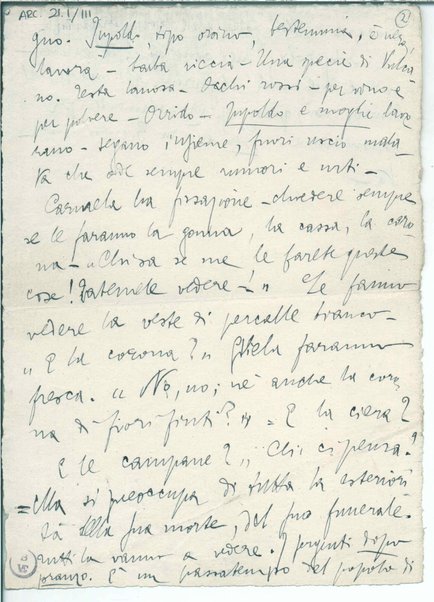 ARC. 21.I/III
2
gno. Zupoldo, tipo orsino, bestemmia, è nero,
lavora – barba riccia – Una specie di Vulca-
no. Testa lanosa – Occhi rossi – per vino e
per polvere – Orrido – Zupoldo e moglie lavo
rano – segano insieme, fuori uscio mala-
ta che ode sempre rumori e urti –
Carmela ha fissazione – chiedere sempre
se le faranno la gonna, la cassa, la coro-
na – "Chissà se me le farete queste
cose! Fatemele vedere –!" Le fanno
vedere la veste di percalle bianco –
"E la corona?" Gliela faranno
fresca. "No, no; nè anche la coro
na di fiori finti?" "E la cera?
E le campane?" Chi ci pensa?
Ella si preoccupa di tutta la esteriori
=tà della sua morte, del suo funerale.
Tutti la vanno a vedere. I pezzenti dopo
pranzo. È un passatempo del popolo di